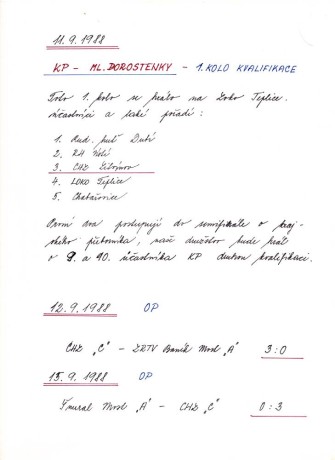 11. 9. 1988
KP - ML. DOROSTENKY - 1. KOLO KVALIFIKACE
Toto 1. kolo se hrálo na Loko Teplice.
účastníci a také pořadí :
1. Rud. huť Dubí
2. RH
3. CHZ Litvínov
4. LOKO Teplice
5. Chabařovice
První dva postupují do semifinále o kraj-
ského přeborníka, naše družstvo bude hrát
o 9. a 10. účastníka KP druhou kvalifikaci.
12. 9. 1988 OP
CHZ "C" - ZRTV Baník Most "A" 3:0
15. 9. 1988 OP
Most "A" - CHZ "C" 0:3